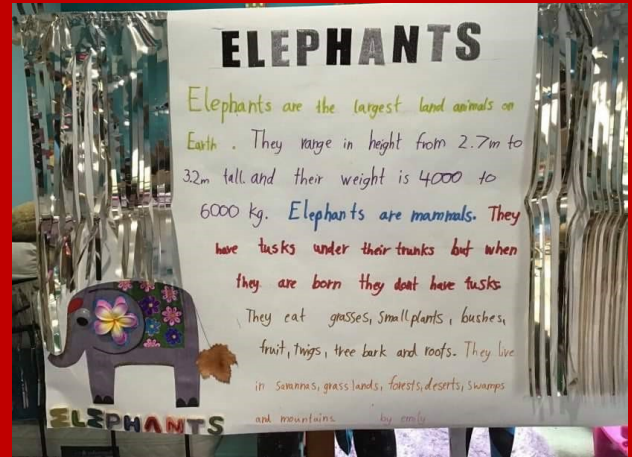 ELEPHANTS
Elephants are the largest land animals on
Earth . They range in height from 2.7m to
3.2m tall. and their weight is 4000 to
6000 kg. Elephants are mammals. They
have tusks under their trunks but when
they are born they dont have tusks
They eat grasses, small plants, bushes,
fruit, twigs, tree bark and roots. They live
in Savannas, grass lands, forests, deserts, swamps
and mountains by emily
ELEPHANTS